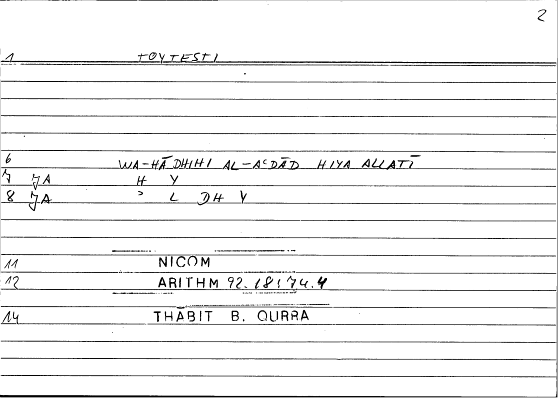 2
1 TOYTESTI
6 WA-HĀDHIHI AL-AʿDĀD HIYA ALLATĪ
7 JA H Y
8 JA ʾ L DH Y
11 NICOM
12 ARITHM 92.18;74.4
14 THĀBIT B. QURRA